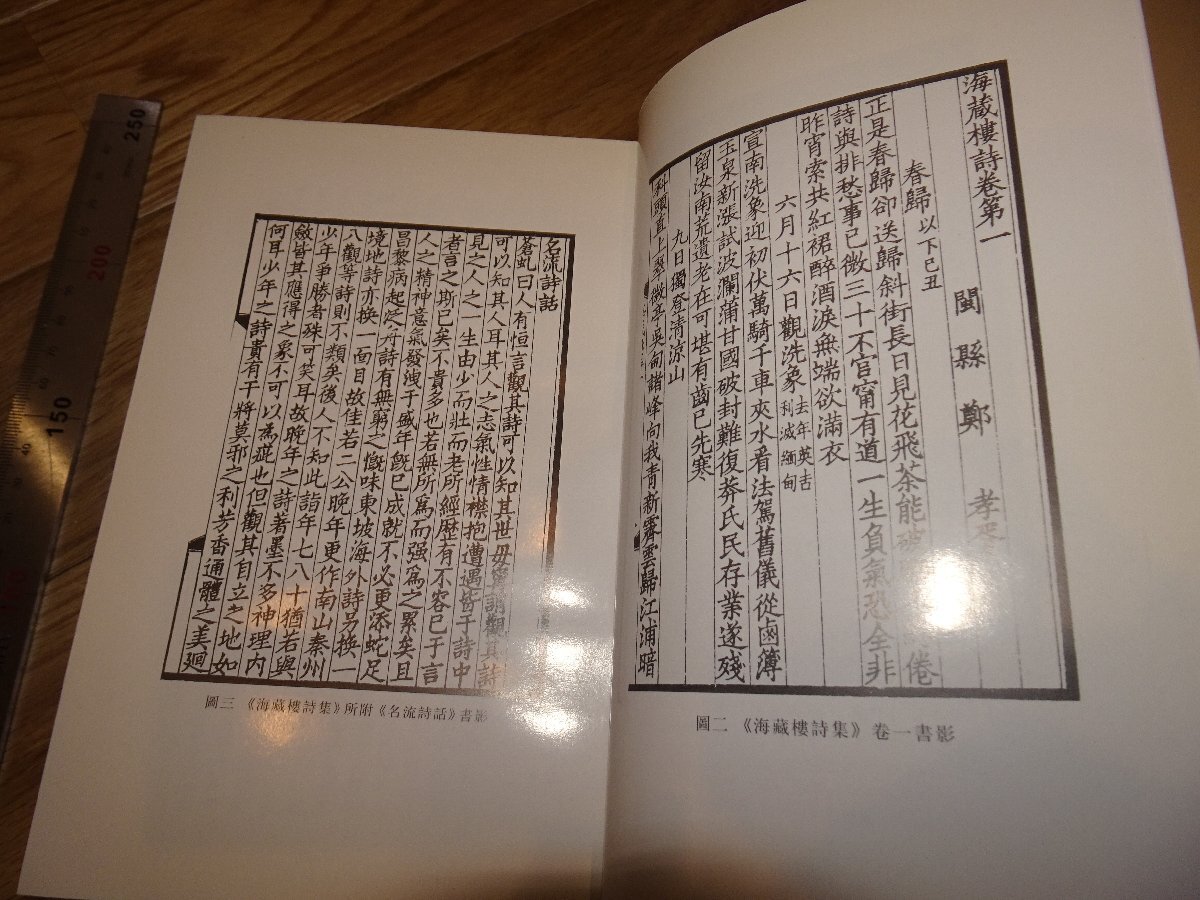 海藏樓詩卷第一
閩縣 鄭孝胥
春歸 以下己丑
正是春歸卻送歸斜街長日見花飛茶能破 倦
詩與排愁事已微三十不官甯有道一生負氣恐全非
昨宵索共紅裙醉酒淚無端欲滿衣
六月十六日觀洗象 去年英吉利滅緬甸
宣南洗象迎初伏萬騎千車夾水看法駕舊儀從鹵簿
玉泉新漲試波瀾蒲甘國破封難復莽氏民存業遂殘
留汝南荒遺老在可堪有齒已先寒
九日獨登清涼山
科頭直上翠微亭吳甸諸峰向我青新霽雲歸江浦暗
圖二 《海藏樓詩集》卷一書影
名流詩話
蒼虬曰人有恒言觀其詩可以知其世毋寧謂觀其詩
可以知其人耳其人之志氣性情襟抱遭遇皆于詩中
見之人之一生由少而壯而老所經歷有不容已于言
者言之斯已矣不貴多也若無所為而强為之累矣且
人之精神意氣發洩于盛年旣已成就不必更添蛇足
昌黎病起泛舟詩有無窮之慨味東坡海外詩另換一
境地詩亦換一面目故佳若二公晚年更作南山秦州
八觀等詩則不類矣後人不知此詣年七八十猶若與
少年爭勝者殊可笑耳故晚年之詩著墨不多神理內
斂皆其應得之象不可以為疵也但觀其自立之地如
何耳少年之詩貴有干將莫邪之利芳香通體之美迴
圖三 《海藏樓詩集》所附《名流詩話》書影
250
200
150